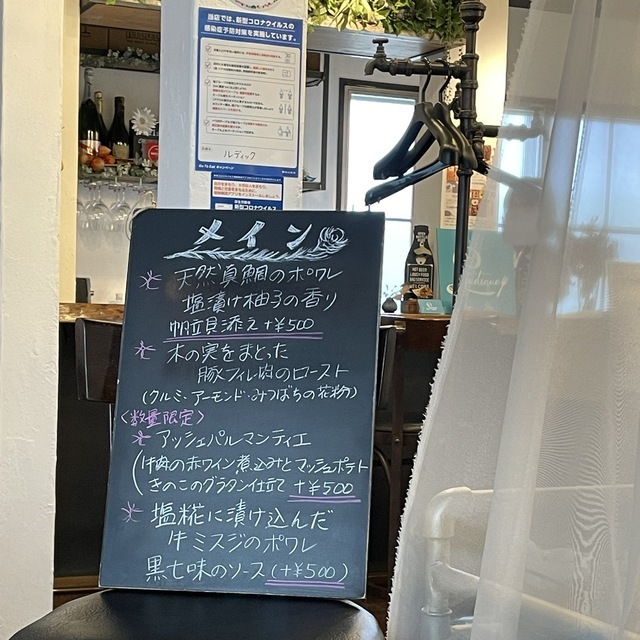 当店では、新型コロナウイルスの
感染症予防対策を実施しています。
ルディック
Go To Eat キャンペーン
メイン
天然真鯛のポワレ
塩漬け柚子の香り
帆立貝添え +¥500
木の実をまとった
豚フィレ肉のロースト
(クルミ・アーモンド・みつばちの花粉)
〈数量限定〉
アッシェパルマンティエ
(牛肉の赤ワイン煮込みとマッシュポテト
きのこのグラタン仕立て +¥500
塩糀に漬け込んだ
牛ミスジのポワレ
黒七味のソース (+¥500)